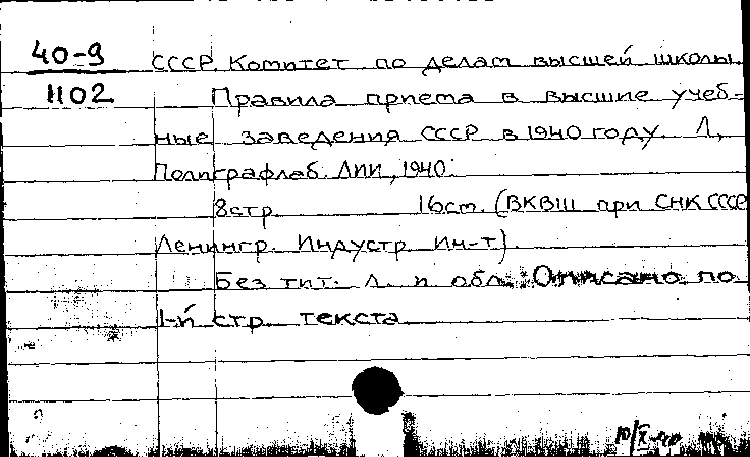 40-9
1102
СССР. Комитет по делам высшей школы.
Правила приема в высшие учеб-
ные заведения СССР в 1940 году. Л,
Полиграфлаб. ЛИИ, 1940.
8 стр. 16 см. (ВКВШ при СНК СССР
Ленингр. Индустр. Ин-т).
Без тит. л. и обл. Описано по
1-й стр. текста
10/X-40